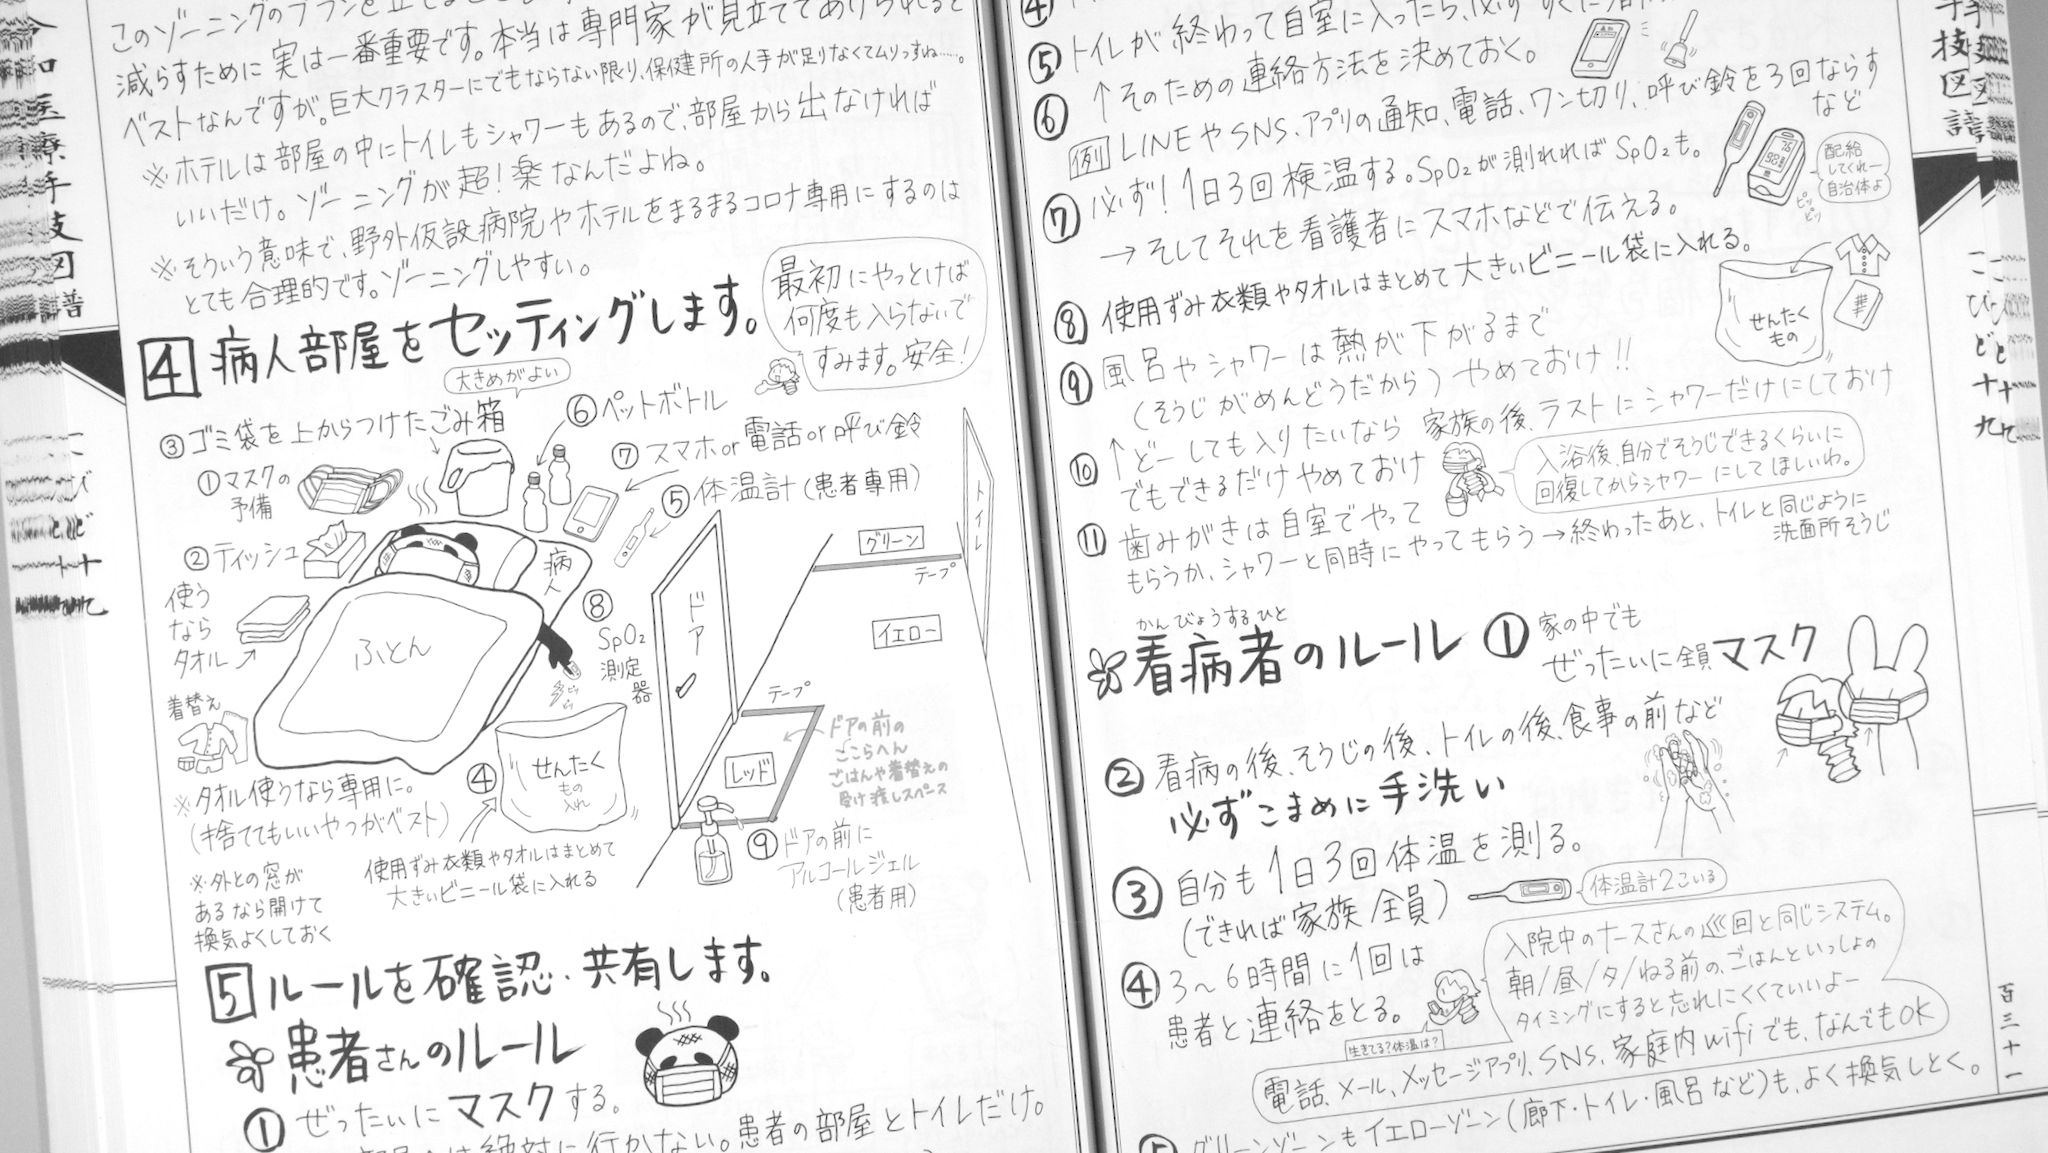 このゾーニングのプランを立てる
減らすために実は一番重要です。本当は専門家が見立ててあげられると
ベストなんですが。巨大クラスターにでもならない限り、保健所の人手が足りなくてムリっすね……。
※ホテルは部屋の中にトイレもシャワーもあるので、部屋から出なければ
いいだけ。ゾーニングが超！楽なんだよね。
※そういう意味で、野外仮設病院やホテルをまるまるコロナ専用にするのは
とても合理的です。ゾーニングしやすい。
4 病人部屋をセッティングします。
最初にやっとけば
何度も入らないで
すみます。安全！
大きめがよい
③ゴミ袋を上からつけたごみ箱
⑥ペットボトル
⑦スマホor電話or呼び鈴
①マスクの
予備
⑤体温計(患者専用)
②ティッシュ
病人
使う
なら
タオル
ふとん
⑧
SpO₂
測定
器
ピッ
ピッ
着替え
④
せんたく
もの
入れ
ドア
トイレ
グリーン
テープ
イエロー
テープ
レッド
ドアの前の
ここらへん
ごはんや着替えの
受け渡しスペース
※タオル使うなら専用に。
(捨ててもいいやつがベスト)
使用ずみ衣類やタオルはまとめて
大きいビニール袋に入れる
⑨ドアの前に
アルコールジェル
(患者用)
※外との窓が
あるなら開けて
換気よくしておく
5 ルールを確認・共有します。
患者さんのルール
①ぜったいにマスクする。
絶対に行かない。患者の部屋とトイレだけ。
令和医療手技図譜
こびと十九
④
⑤トイレが終わって自室に入ったら、必ず
↑そのための連絡方法を決めておく。
⑥
例 LINEやSNS、アプリの通知、電話、ワン切り、呼び鈴を3回ならす
など
⑦必ず！1日3回検温する。SpO₂が測れればSpO₂も。
→そしてそれを看護者にスマホなどで伝える。
配給
してくれー
自治体よ
ピッ
ピッ
⑧使用ずみ衣類やタオルはまとめて大きいビニール袋に入れる。
せんたく
もの
⑨風呂やシャワーは熱が下がるまで
(そうじがめんどうだから)やめておけ!!
⑩↑どーしても入りたいなら家族の後、ラストにシャワーだけにしておけ
でもできるだけやめておけ
入浴後、自分でそうじできるくらいに
回復してからシャワーにしてほしいわ。
⑪歯みがきは自室でやって
もらうか、シャワーと同時にやってもらう→終わったあと、トイレと同じように
洗面所そうじ
かんびょうするひと
看病者のルール ①家の中でも
ぜったいに全員マスク
②看病の後、そうじの後、トイレの後、食事の前など
必ずこまめに手洗い
③自分も1日3回体温を測る。
(できれば家族全員)
体温計2こいる
④3～6時間に1回は
患者と連絡をとる。
入院中のナースさんの巡回と同じシステム。
朝/昼/夕/ねる前の、ごはんといっしょの
タイミングにすると忘れにくくていいよー
生きてる？体温は？
電話、メール、メッセージアプリ、SNS、家庭内wifiでも、なんでもOK
⑤グリーンゾーンもイエローゾーン(廊下・トイレ・風呂など)も、よく換気しとく。
手技図譜
こびと十九
百三十一